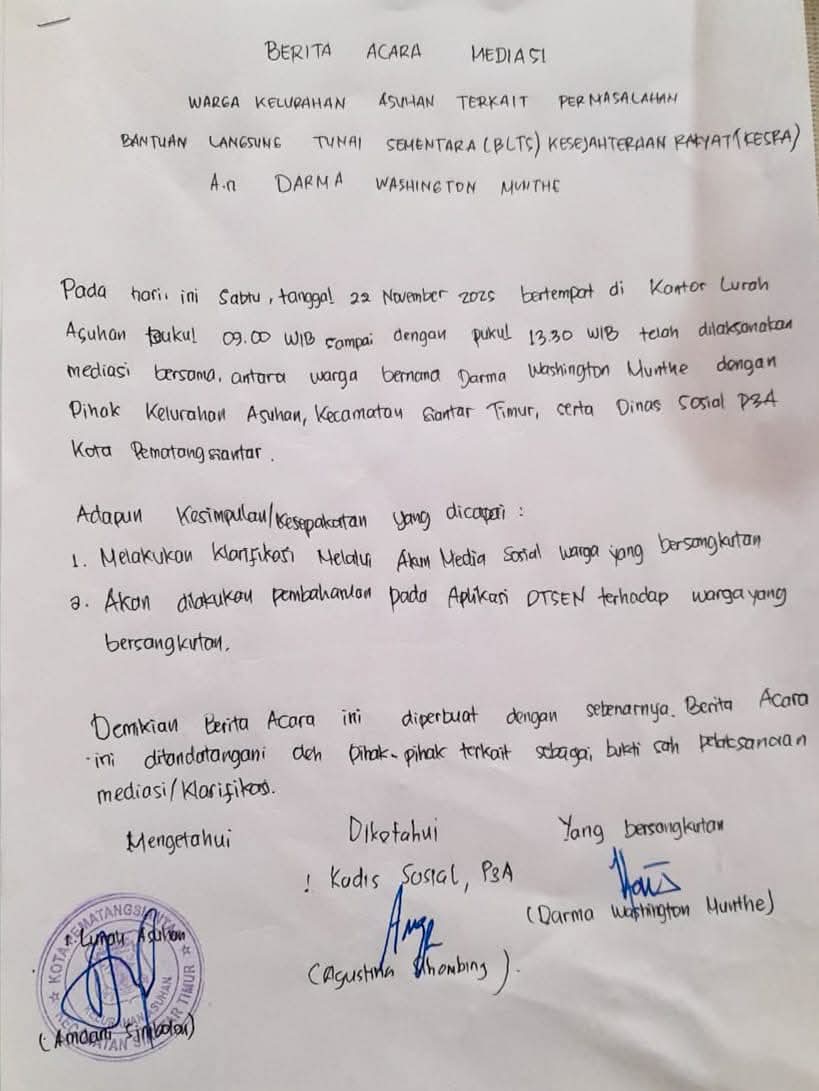 BERITA ACARA MEDIASI
WARGA KELURAHAN ASUHAN TERKAIT PERMASALAHAN
BANTUAN LANGSUNG TUNAI SEMENTARA (BLTS) KESEJAHTERAAN RAKYAT (KESRA)
A.n DARMA WASHINGTON MUNTHE
Pada hari ini Sabtu, tanggal 22 November 2025 bertempat di Kantor Lurah
Asuhan pukul 09.00 WIB sampai dengan pukul 13.30 WIB telah dilaksanakan
mediasi bersama, antara warga bernama Darma Washington Munthe dengan
Pihak Kelurahan Asuhan, Kecamatan Siantar Timur, serta Dinas Sosial P3A
Kota Pematangsiantar.
Adapun Kesimpulan/Kesepakatan yang dicapai :
1. Melakukan Klarifikasi Melalui Akun Media Sosial warga yang bersangkutan
2. Akan dilakukan pembaharuan pada Aplikasi DTSEN terhadap warga yang
bersangkutan.
Demikian Berita Acara ini diperbuat dengan sebenarnya. Berita Acara
ini ditandatangani oleh pihak-pihak terkait sebagai bukti sah pelaksanaan
mediasi/Klarifikasi.
Mengetahui Diketahui Yang bersangkutan
Kadis Sosial, P3A
(Darma Washington Munthe)
Lurah Asuhan
(Agustina Sihombing).
(Amdani Simbolon)
KOTA PEMATANGSIANTAR
KELURAHAN ASUHAN
KECAMATAN SIANTAR TIMUR